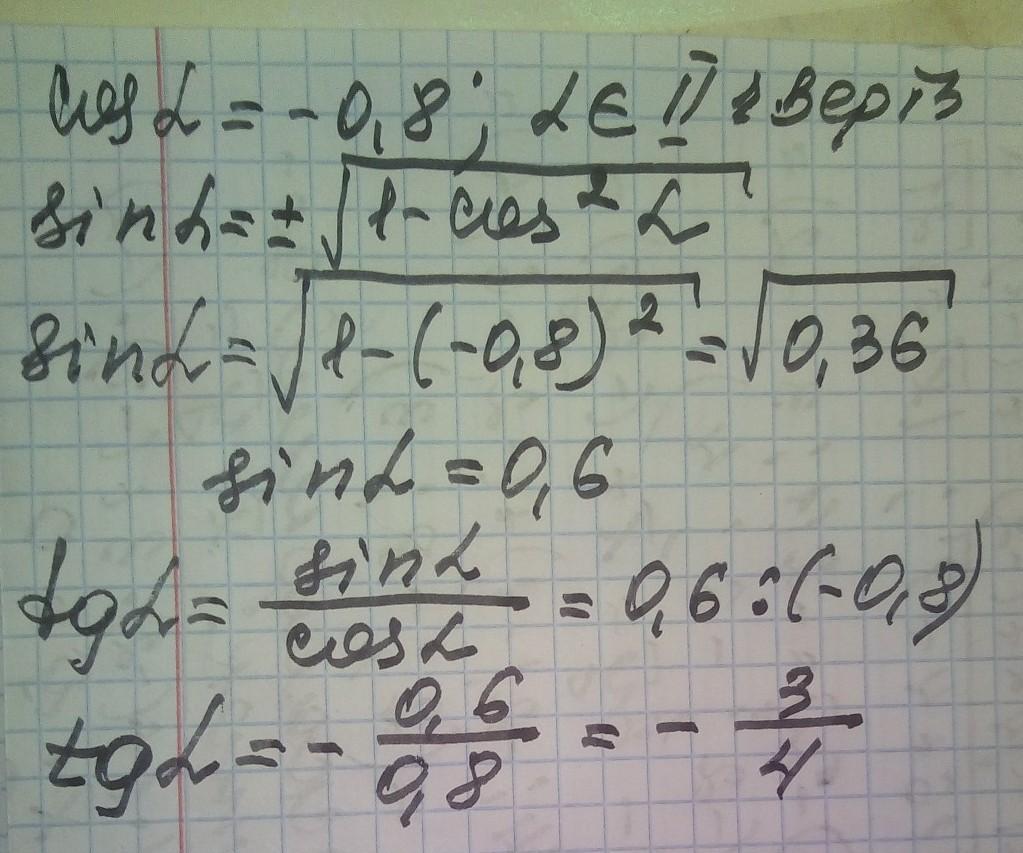 cos α = - 0,8; α ∈ II чверті
sin α = ± √(1 - cos² α)
sin α = √(1 - (-0,8)²) = √0,36
sin α = 0,6
tg α = sin α / cos α = 0,6 : (-0,8)
tg α = - 0,6 / 0,8 = - 3 / 4